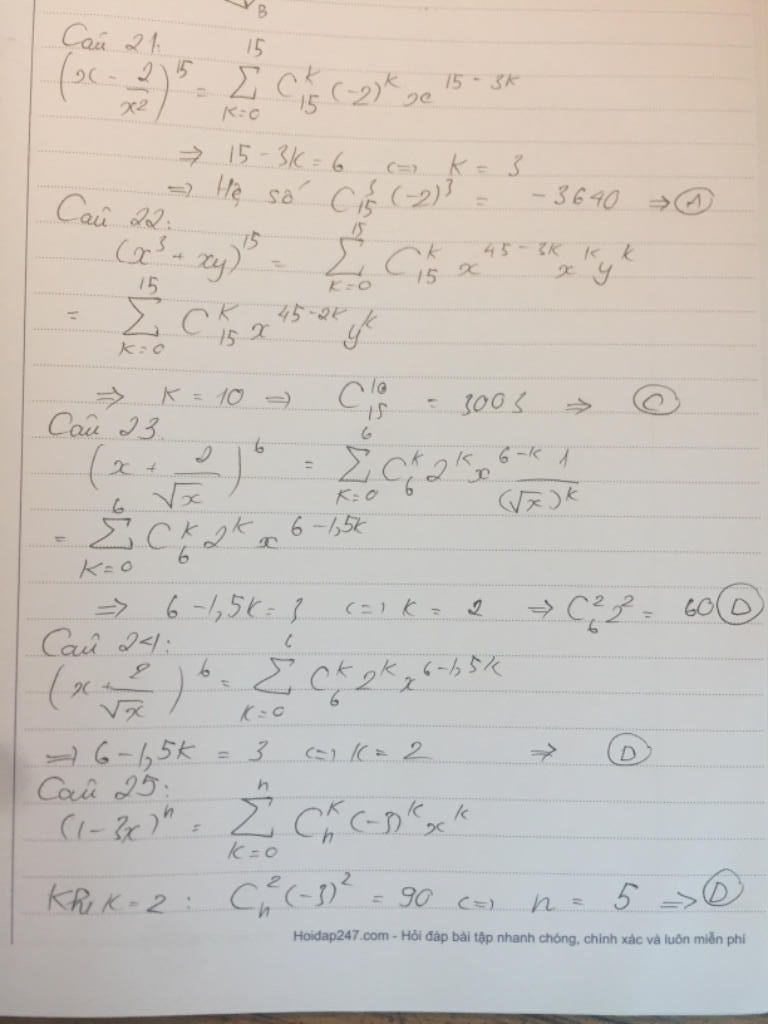 B
Câu 21:
(x - 2/x²)¹⁵ = Σ_{k=0}^{15} C₁₅ᵏ (-2)ᵏ x^{15-3k}
⇒ 15-3k = 6 ⇔ k = 3
⇒ Hệ số C₁₅³ (-2)³ = -3640 ⇒ Ⓐ
Câu 22:
(x³ + xy)¹⁵ = Σ_{k=0}^{15} C₁₅ᵏ x^{45-3k} xᵏ yᵏ
= Σ_{k=0}^{15} C₁₅ᵏ x^{45-2k} yᵏ
⇒ k = 10 ⇒ C₁₅¹⁰ = 3003 ⇒ Ⓒ
Câu 23.
(x + 2/√x)⁶ = Σ_{k=0}^{6} C₆ᵏ 2ᵏ x^{6-k} 1/(√x)ᵏ
= Σ_{k=0}^{6} C₆ᵏ 2ᵏ x^{6-1,5k}
⇒ 6-1,5k = 3 ⇔ k = 2 ⇒ C₆² 2² = 60 Ⓓ
Câu 24:
(x + 2/√x)⁶ = Σ_{k=0}^{6} C₆ᵏ 2ᵏ x^{6-1,5k}
⇒ 6-1,5k = 3 ⇔ k = 2 ⇒ Ⓓ
Câu 25:
(1-3x)ⁿ = Σ_{k=0}^{n} Cₙᵏ (-3)ᵏ xᵏ
Khi k = 2 : Cₙ² (-3)² = 90 ⇔ n = 5 ⇒ Ⓓ
Hoidap247.com - Hỏi đáp bài tập nhanh chóng, chính xác và luôn miễn phí